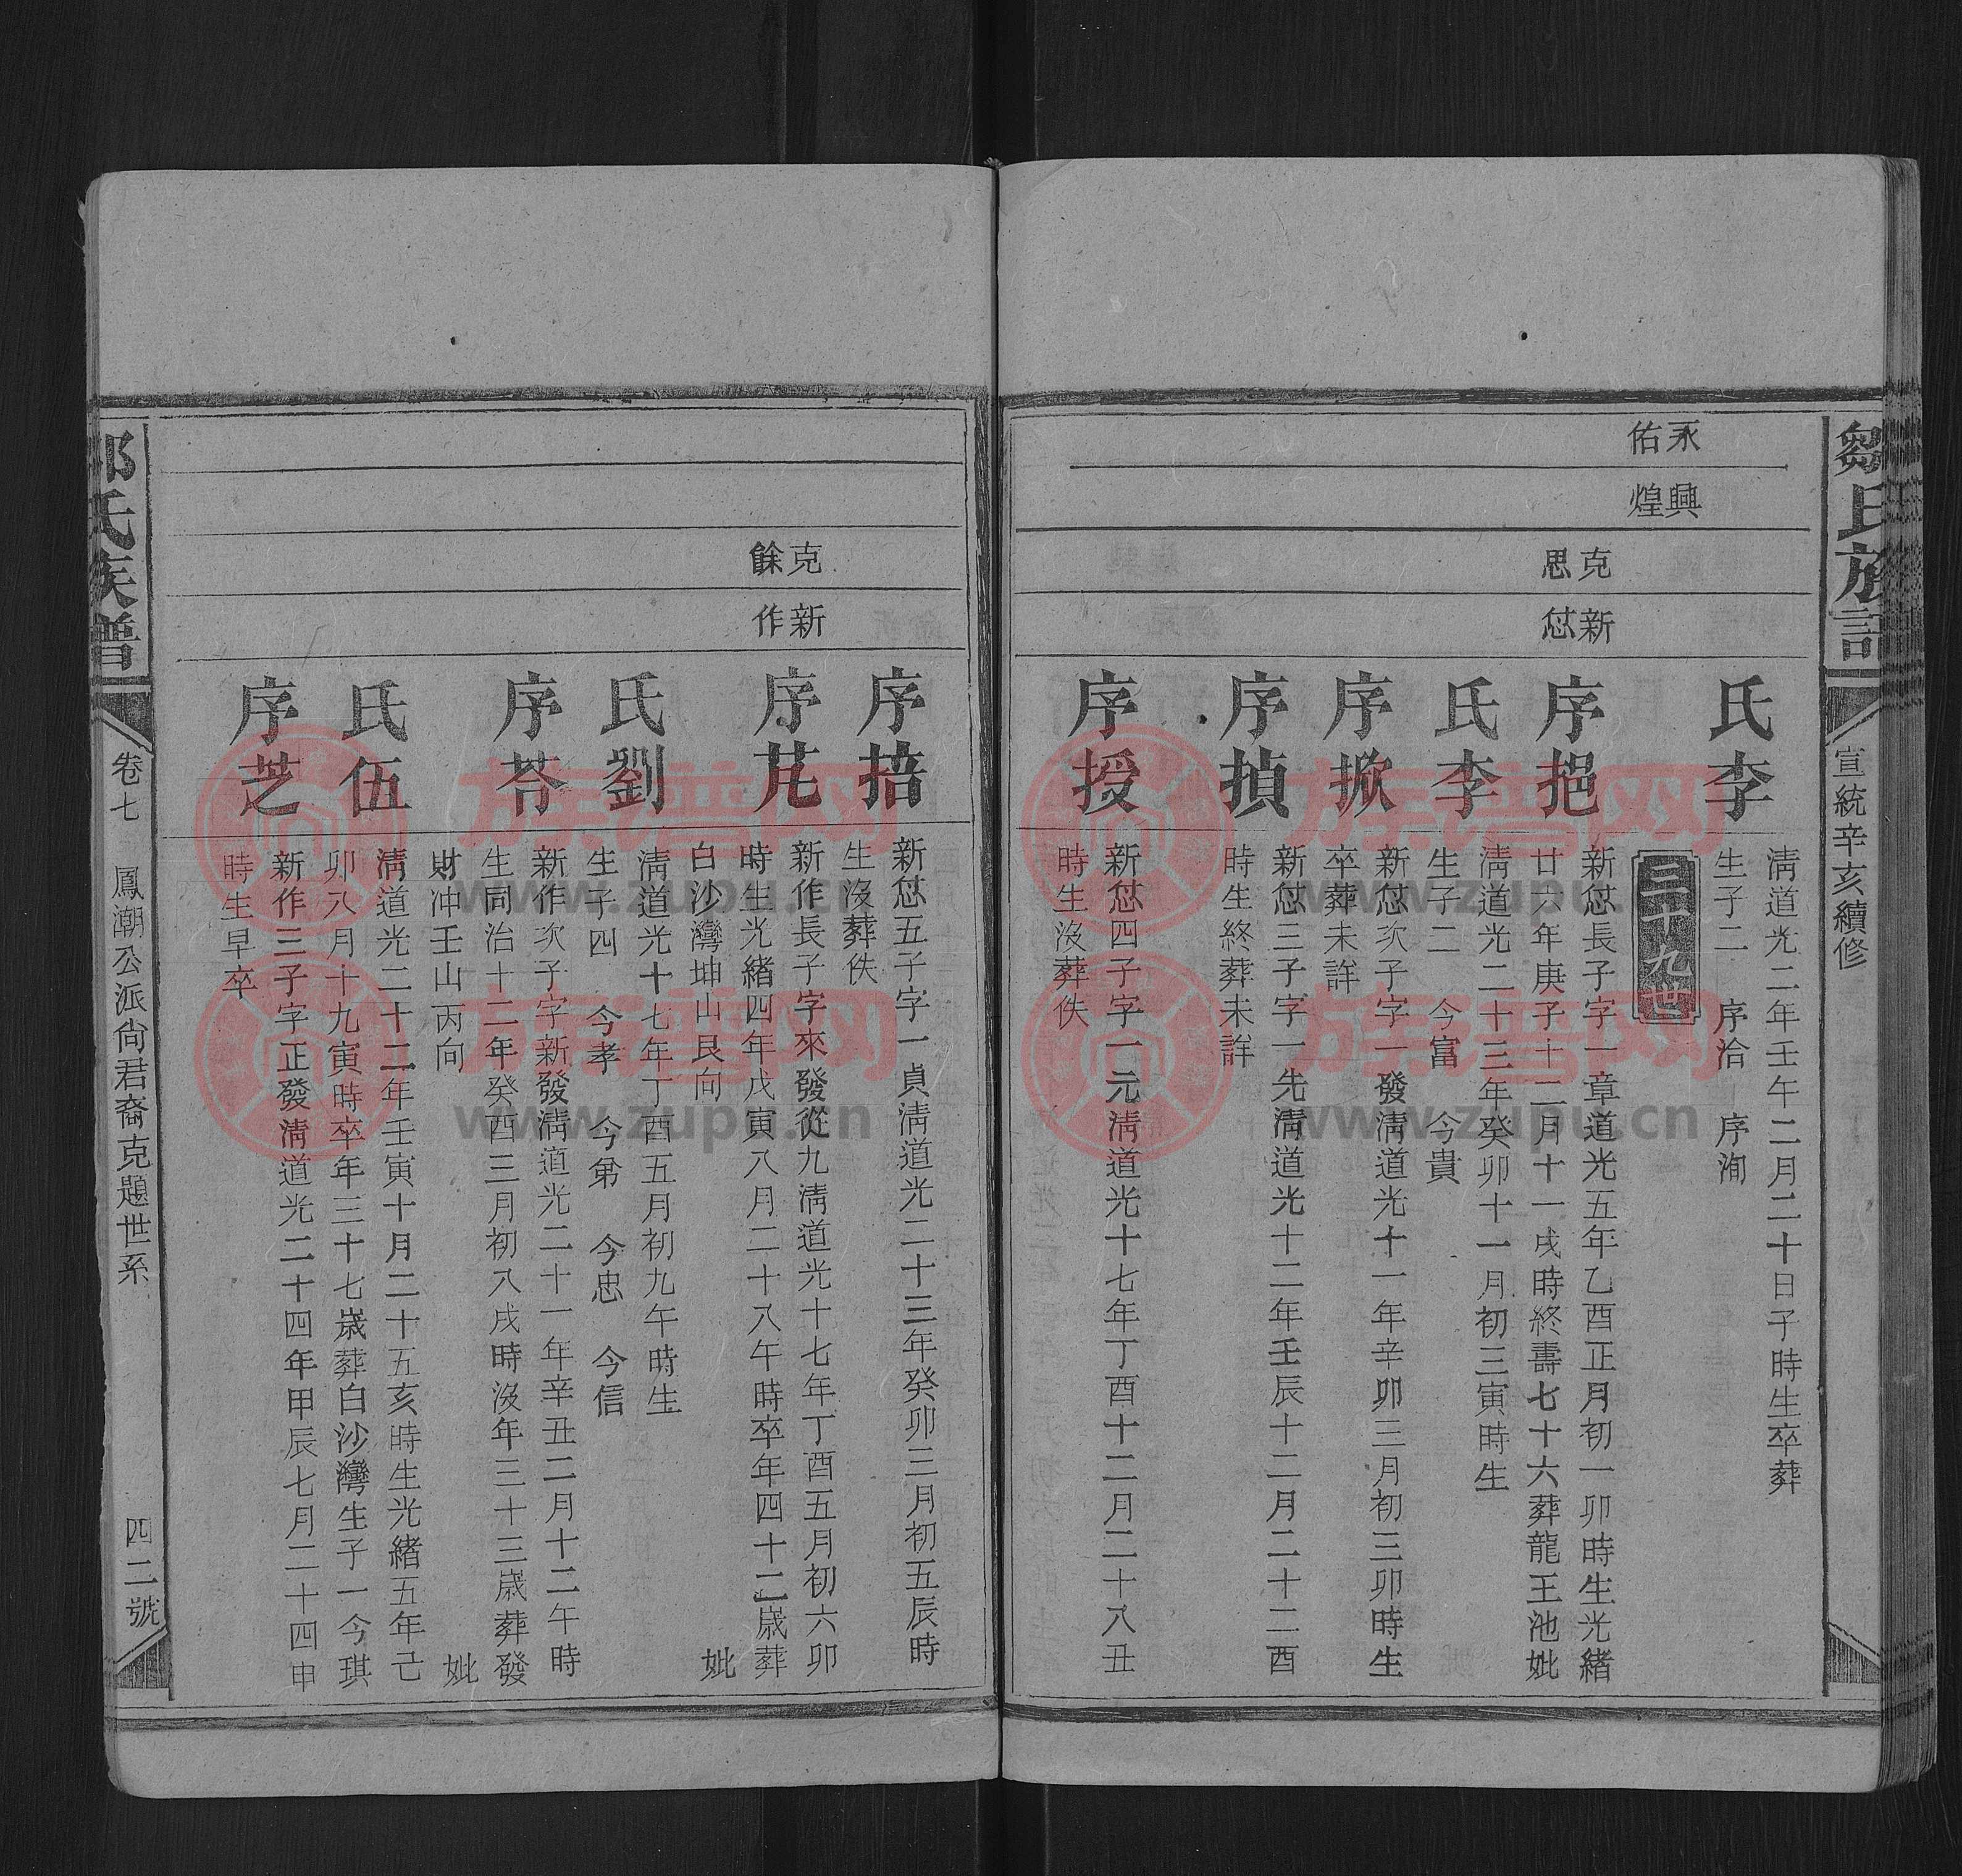 鄒氏族譜
宣統辛亥續修
永佑
興煌
克思
新愆
氏李
清道光二年壬午二月二十日子時生卒葬
生子二 序洽 序洵
三十九世
序挹
新愆長子字一章道光五年乙酉正月初一卯時生光緒
廿六年庚子十二月十一戌時終壽七十六葬龍王池妣
氏李
清道光二十三年癸卯十一月初三寅時生
生子二 今富 今貴
序掀
新愆次子字一發清道光十一年辛卯三月初三卯時生
卒葬未詳
序揁
新愆三子字一先清道光十二年壬辰十二月二十二酉
時生終葬未詳
序授
新愆四子字一元清道光十七年丁酉十二月二十八丑
時生沒葬佚
克餘
新作
序掊
新愆五子字一貞清道光二十三年癸卯三月初五辰時
生沒葬佚
序芃
新作長子字來發從九清道光十七年丁酉五月初六卯
時生光緒四年戊寅八月二十八午時卒年四十二歲葬
白沙灣坤山艮向 妣
氏劉
清道光十七年丁酉五月初九午時生
生子四 今孝 今弟 今忠 今信
序芩
新作次子字新發清道光二十一年辛丑二月十二午時
生同治十二年癸酉三月初八戌時沒年三十三歲葬發
財冲壬山丙向 妣
氏伍
清道光二十二年壬寅十月二十五亥時生光緒五年己
卯八月十九寅時卒年三十七歲葬白沙灣生子一今琪
序芝
新作三子字正發清道光二十四年甲辰七月二十四申
時生早卒
氏族譜
卷七 鳳潮公派尙君裔克題世系 四二號
族谱网
www.zupu.cn
族谱网
www.zupu.cn
族谱网
www.zupu.cn
族谱网
www.zupu.cn